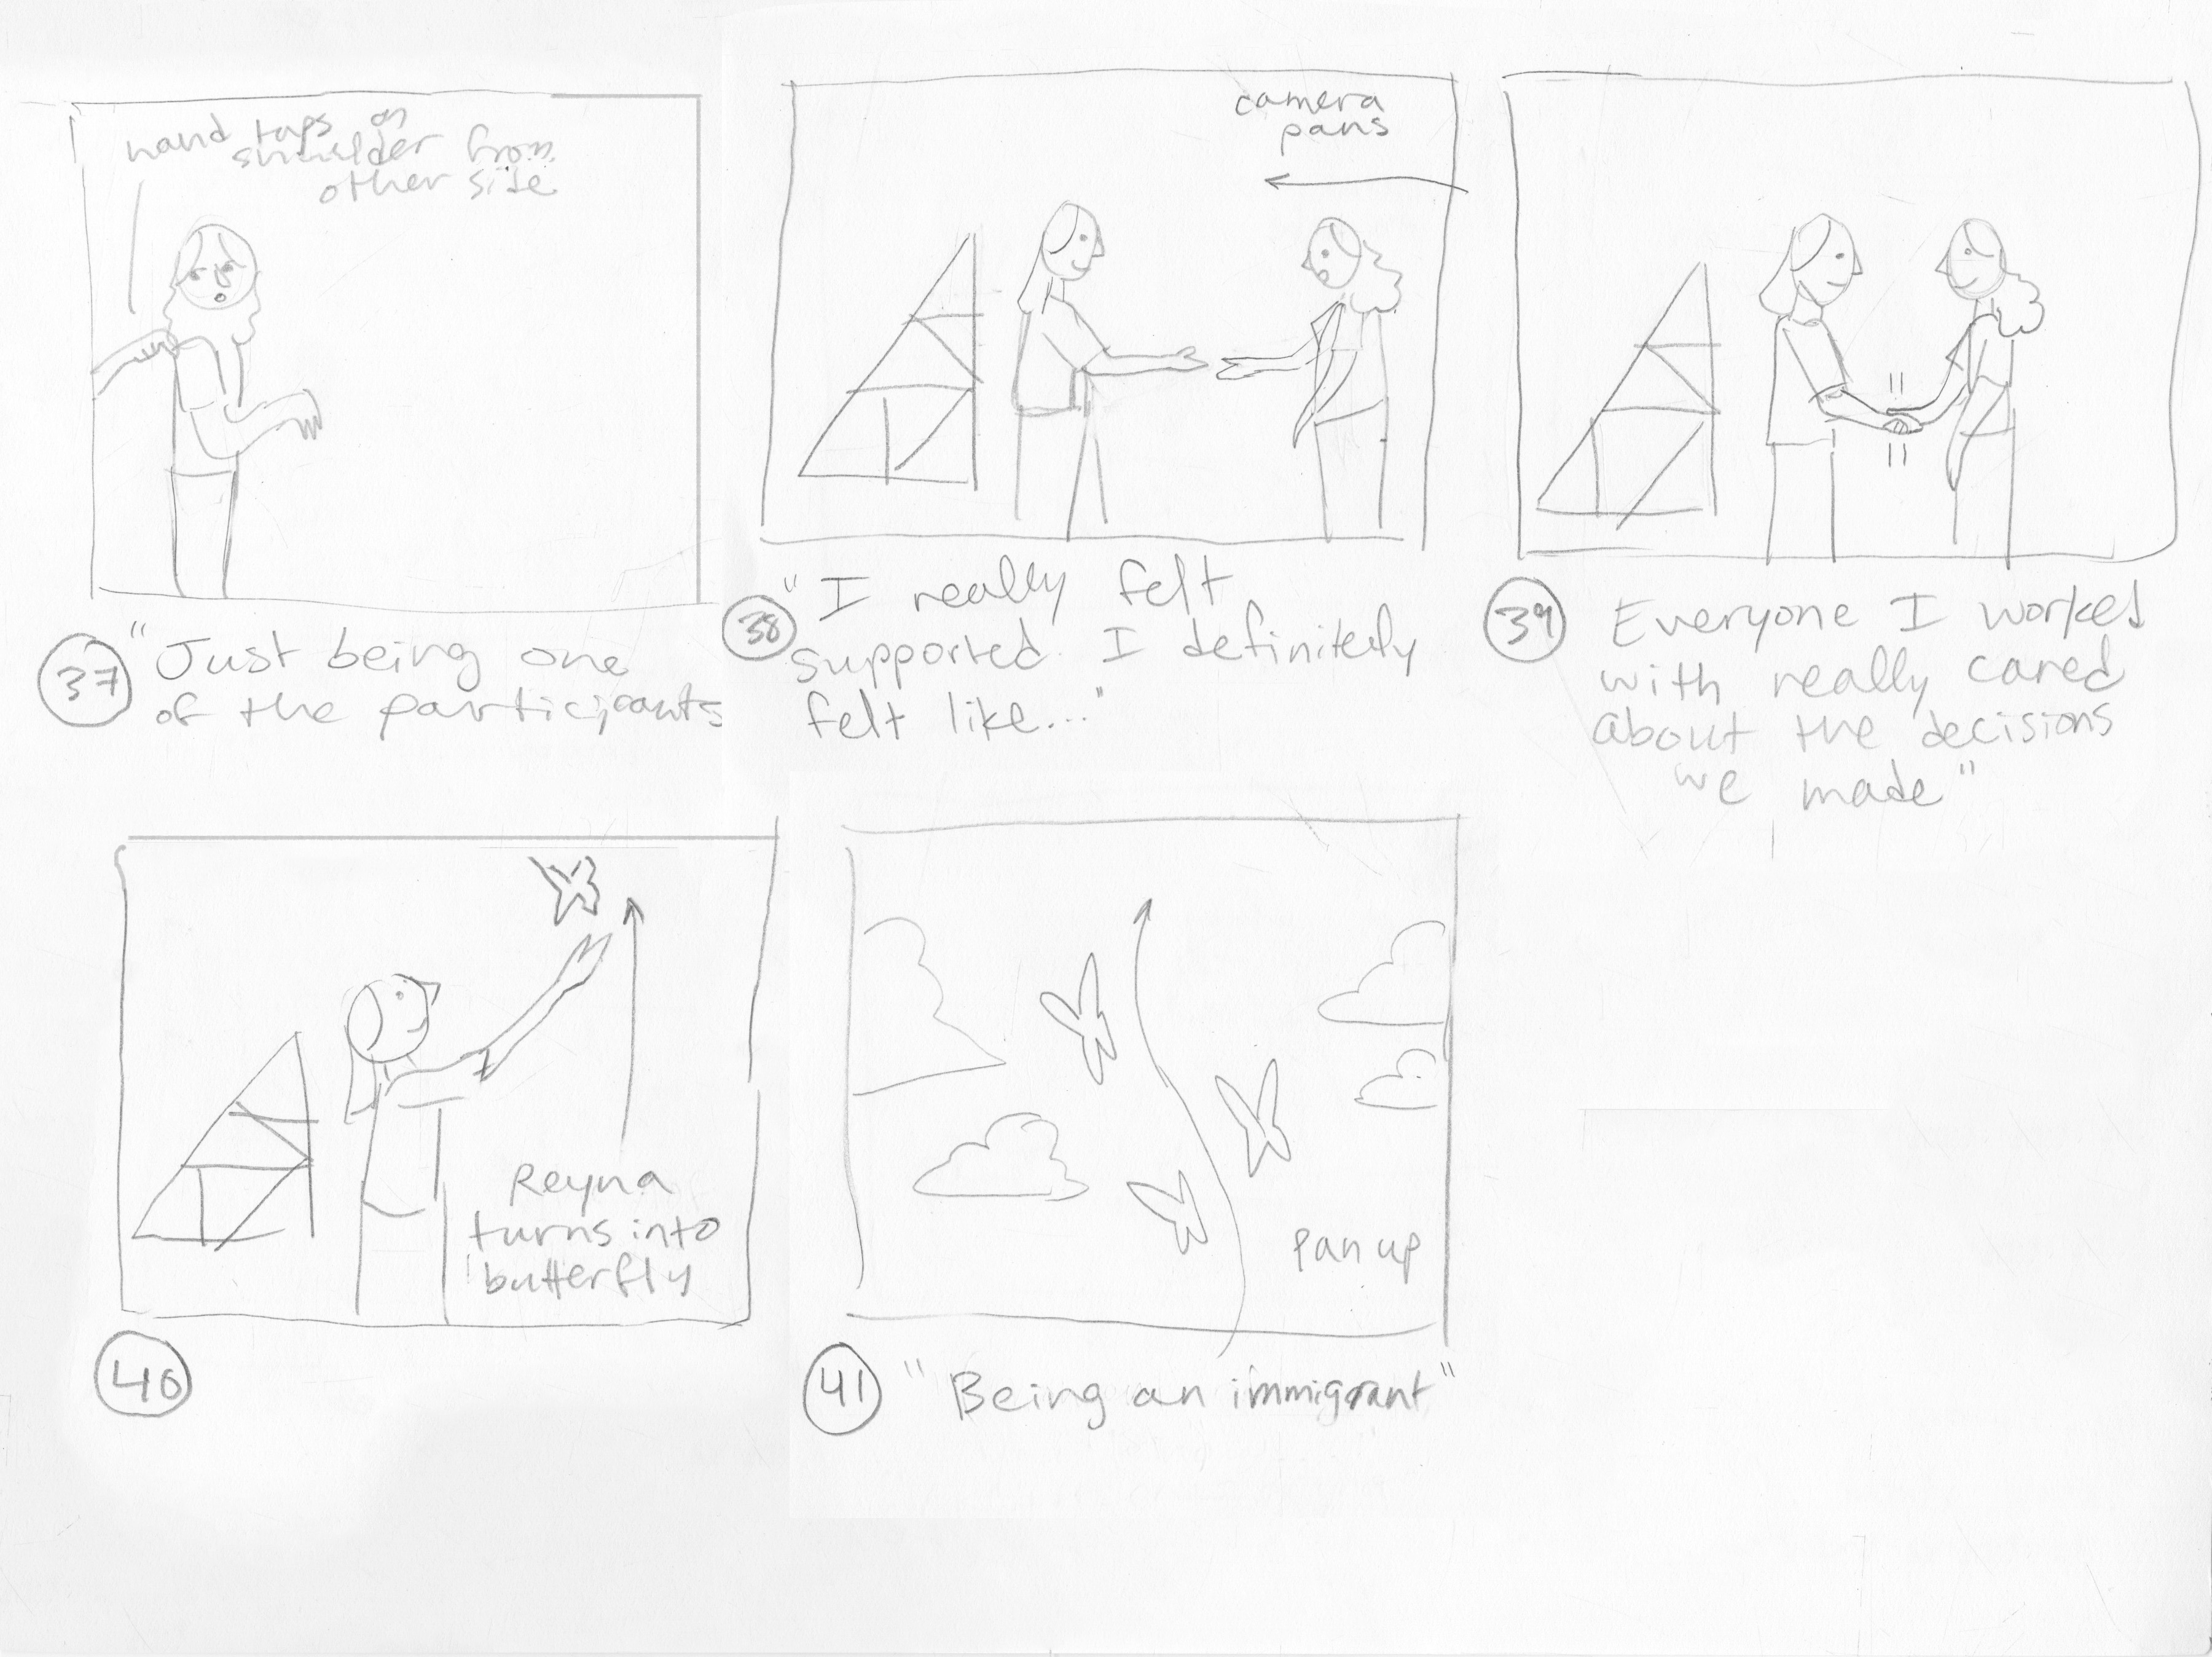 hand taps on
shoulder from
other side
37
"Just being one
of the participants
camera
pans
38
"I really felt
supported. I definitely
felt like..."
39
Everyone I worked
with really cared
about the decisions
we made"
Reyna
turns into
butterfly
40
pan up
41
"Being an immigrant"